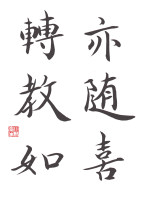 亦随喜
轉教如